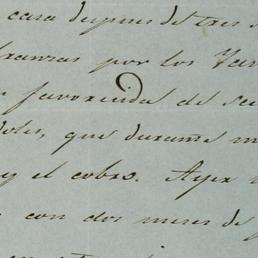 casa despues de tres
por los Var
favorecida del se
que durante m
y el cobro. Ayer
con dos meses de